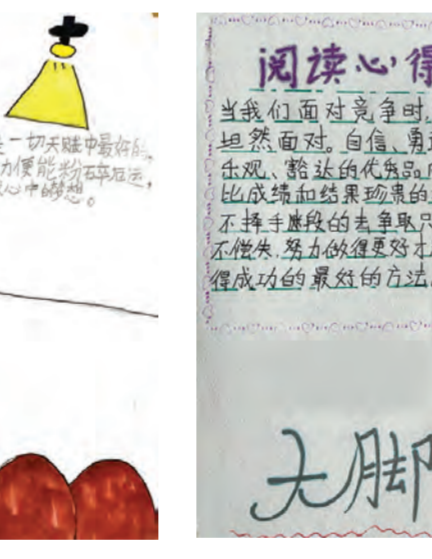 是一切天赋中最好的,
力便能粉碎厄运,
心中的梦想。
阅读心得
当我们面对竞争时,
坦然面对。自信、勇
乐观、豁达的优秀品
比成绩和结果珍贵的
不择手段的去争取只
不偿失,努力做得更好才
得成功的最好的方法
大脚